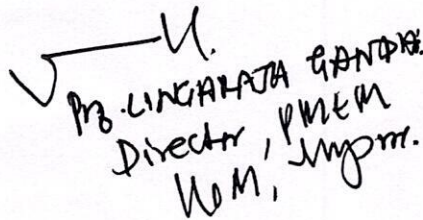 Prof. LINGARAJA GANDHI.
Director, PMEM
UoM, Mysore.